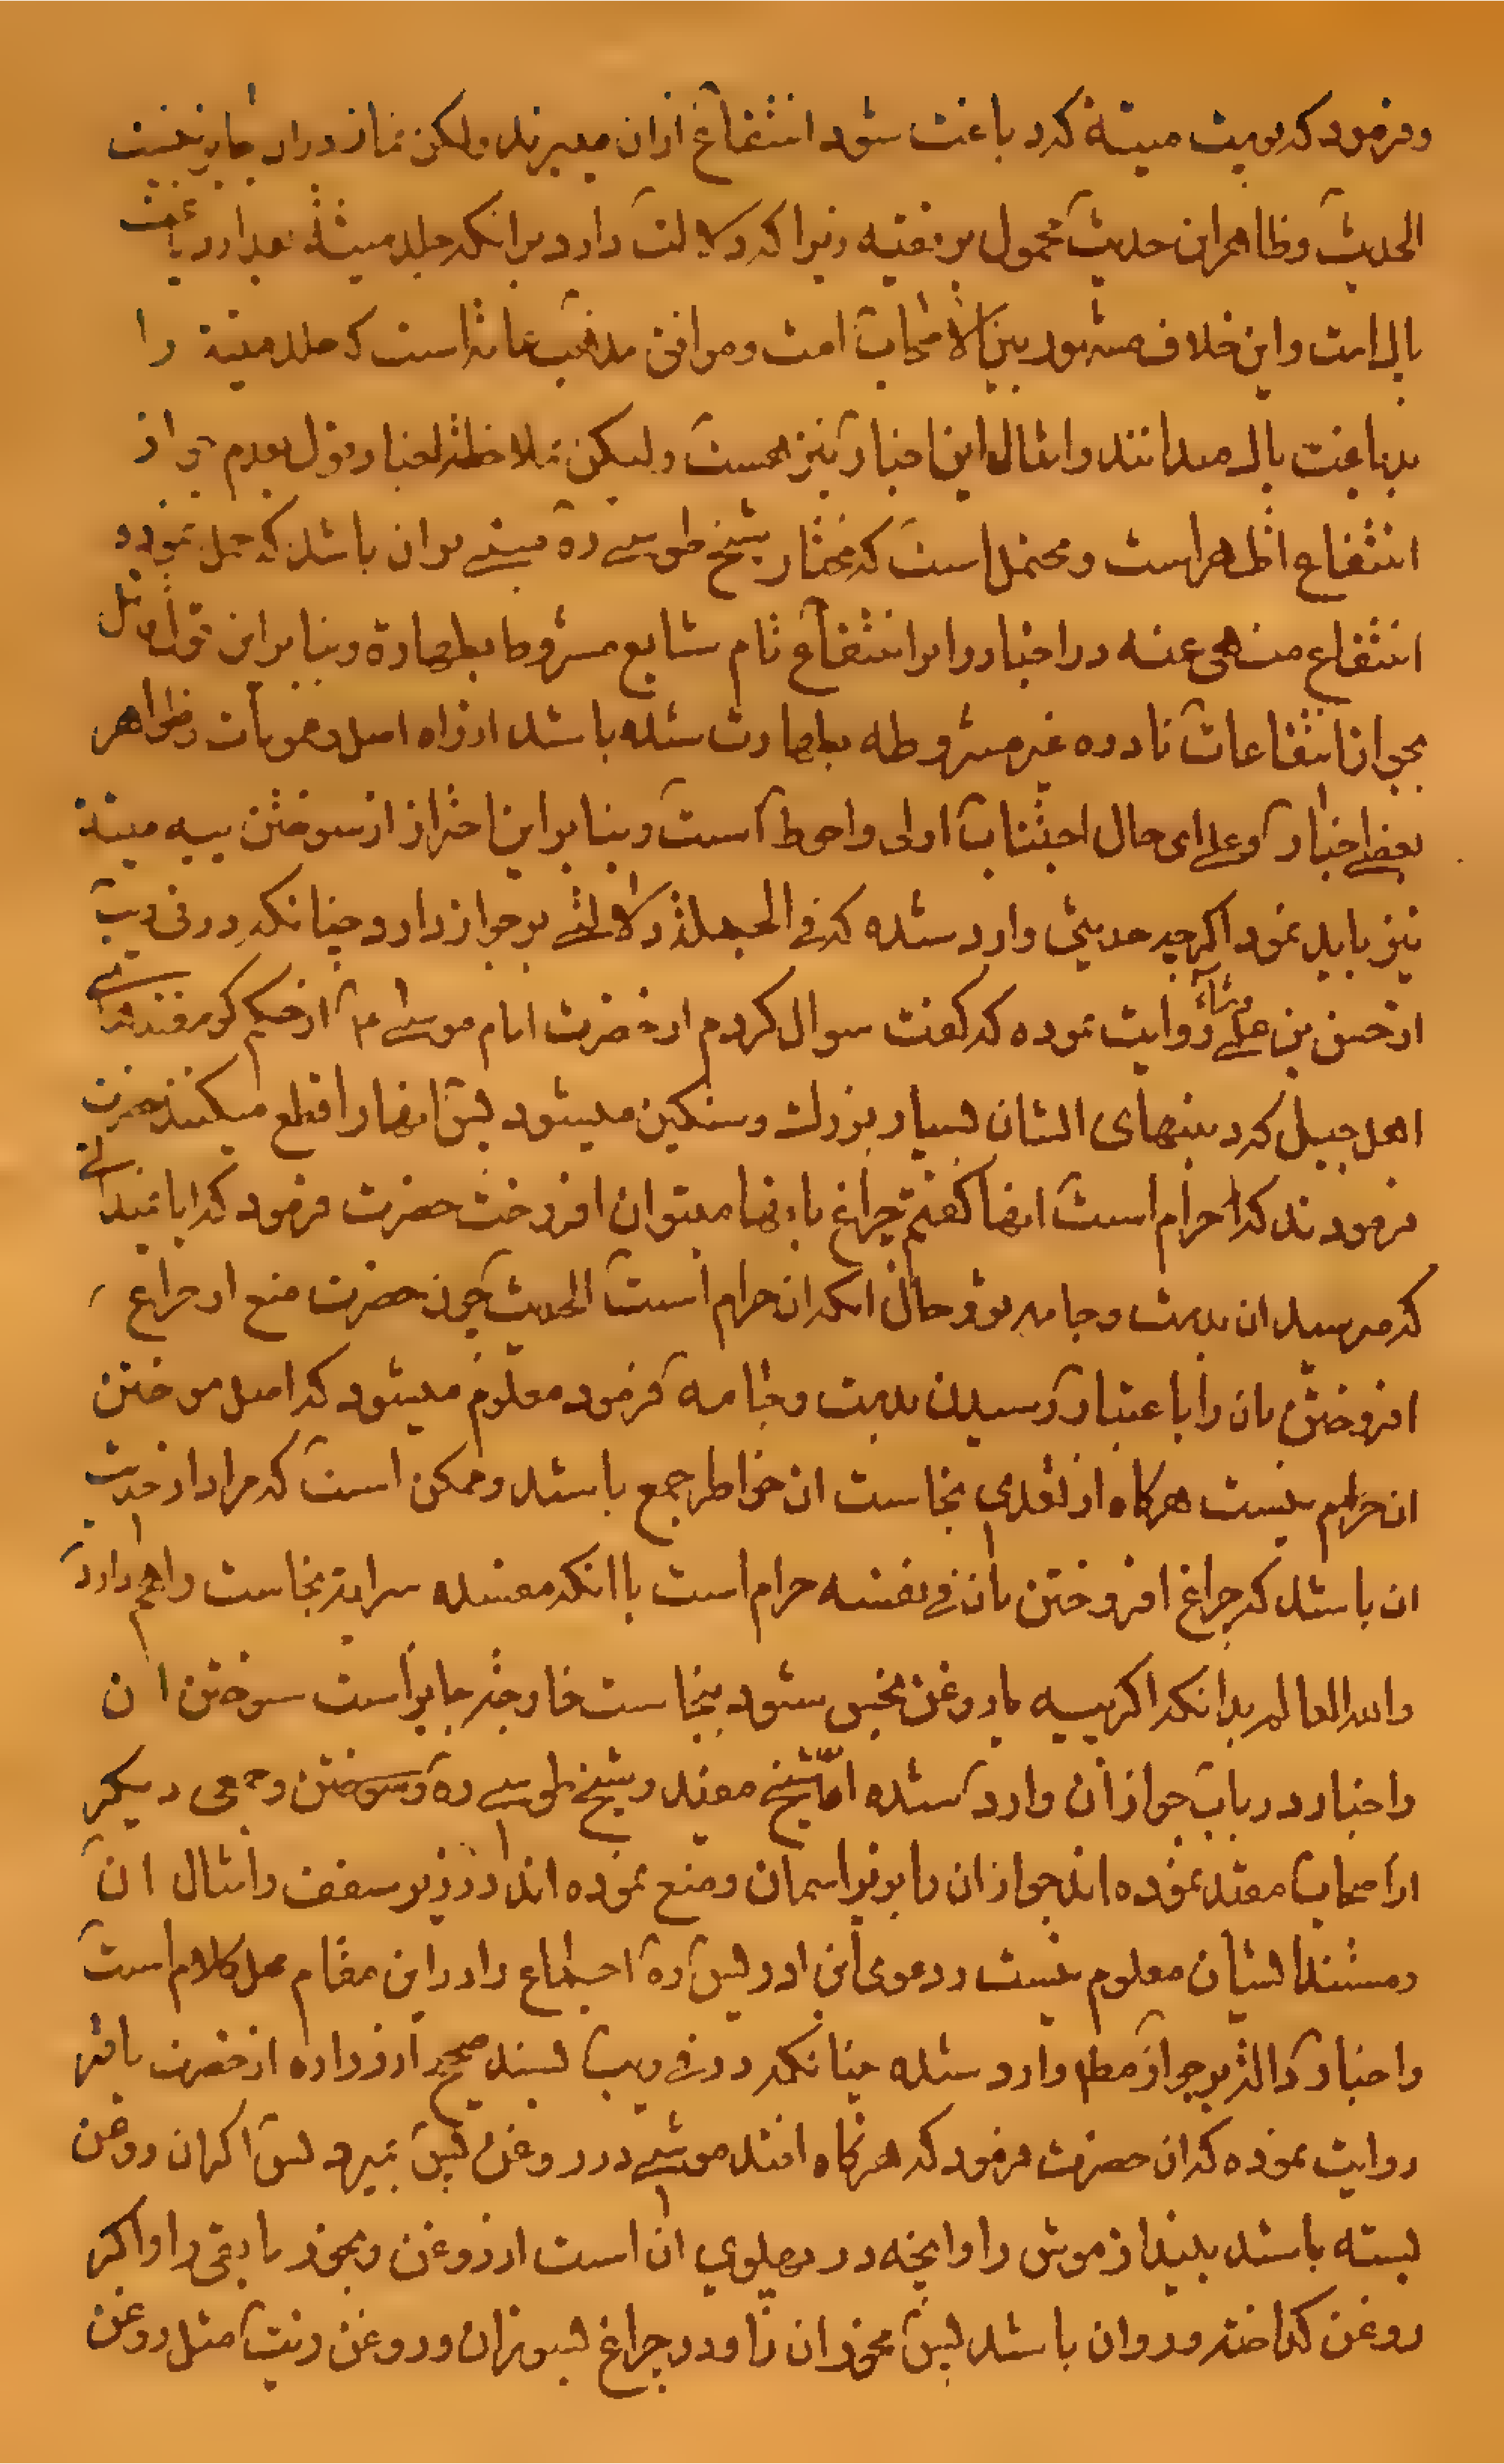 و فرمود که پوست میتة که دباغت شود انتفاع ازان میبرند ولکن نماز دران جایز نیست
الحدیث و ظاهر این حدیث محمول بر تقیه زیرا که دلالت دارد برانکه جلد میته بعد از دباغت
پاک است و این خلاف مشهور بین الاصحاب است و موافق مذهب عامه است که جلد میتة را
بدباغت پاک میدانند و امثال این اخبار نیز هست ولیکن بملاحظه اخبار قول بعدم جواز
انتفاع اظهر است و محتمل است که مختار شیخ طوسی ره مبنی بران باشد که حمل نموده
انتفاع منهی عنه در اخبار را بر انتفاع تام شایع مشروط بطهارة و بنابراین قائل
بجواز انتفاعات نادره غیر مشروطه بطهارت شده باشد از راه اصل و عمومات و ظواهر
بعضی اخبار و علی ای حال اجتناب اولی و احوط است و بنابراین احتراز از سوختن پیه میتة
نیز باید نمود اکرچه حدیثی وارد شده که فی الجمله دلالتی بر جواز دارد چنانکه در فی و یب
از حسن بن علی وشاء روایت نموده که کفت سوال کردم از حضرت امام موسی ع از حکم کوسفندهائی
اهل جبل که دنبهای ایشان بسیار بزرک و سنکین میشود پس انها را قطع میکنند حضرت
فرمودند که حرام است انها کفتم چراغ بانها میتوان افروخت حضرت فرمود که ایا نمیدانی
که میرسد ان بدست و جامه تو و حال انکه ان حرام است الحدیث چون حضرت منع از چراغ
افروختن بان را باعتبار رسیدن بدست و جامه فرمود معلوم میشود که اصل سوختن
ان حرام نیست هرکاه از تعدی نجاست ان خاطر جمع باشد و ممکن است که مراد از حدیث
ان باشد که چراغ افروختن بان فی نفسه حرام است با انکه مفسده سرایة نجاست را هم دارد
والله العالم بدانکه اکر پیه یا روغن نجس شود بنجاست خارجه جایز است سوختن ان
و اخبار در باب جواز ان وارد شده اما شیخ مفید و شیخ طوسی ره و سوختن و جمعی دیکر
از اصحاب مقید نموده اند جواز ان را بزیر اسمان و منع نموده اند در زیر سقف و امثال ان
و مستند ایشان معلوم نیست و دعوی ابن ادریس ره اجماع را در این مقام محل کلام است
و اخبار داله بر جواز مطلقا وارد شده چنانکه در فی و یب بسند صحیح از زراره از حضرت باقر
روایت نموده که ان حضرت فرمود که هرکاه افتد موشی در روغن پس بمیرد پس اکر ان روغن
بسته باشد بینداز موش را و انچه در پهلوی ان است از روغن و بخور مابقی را و اکر
روغن کداخته و روان باشد پس مخور ان را و در چراغ بسوزان و روغن زیت مثل روغن